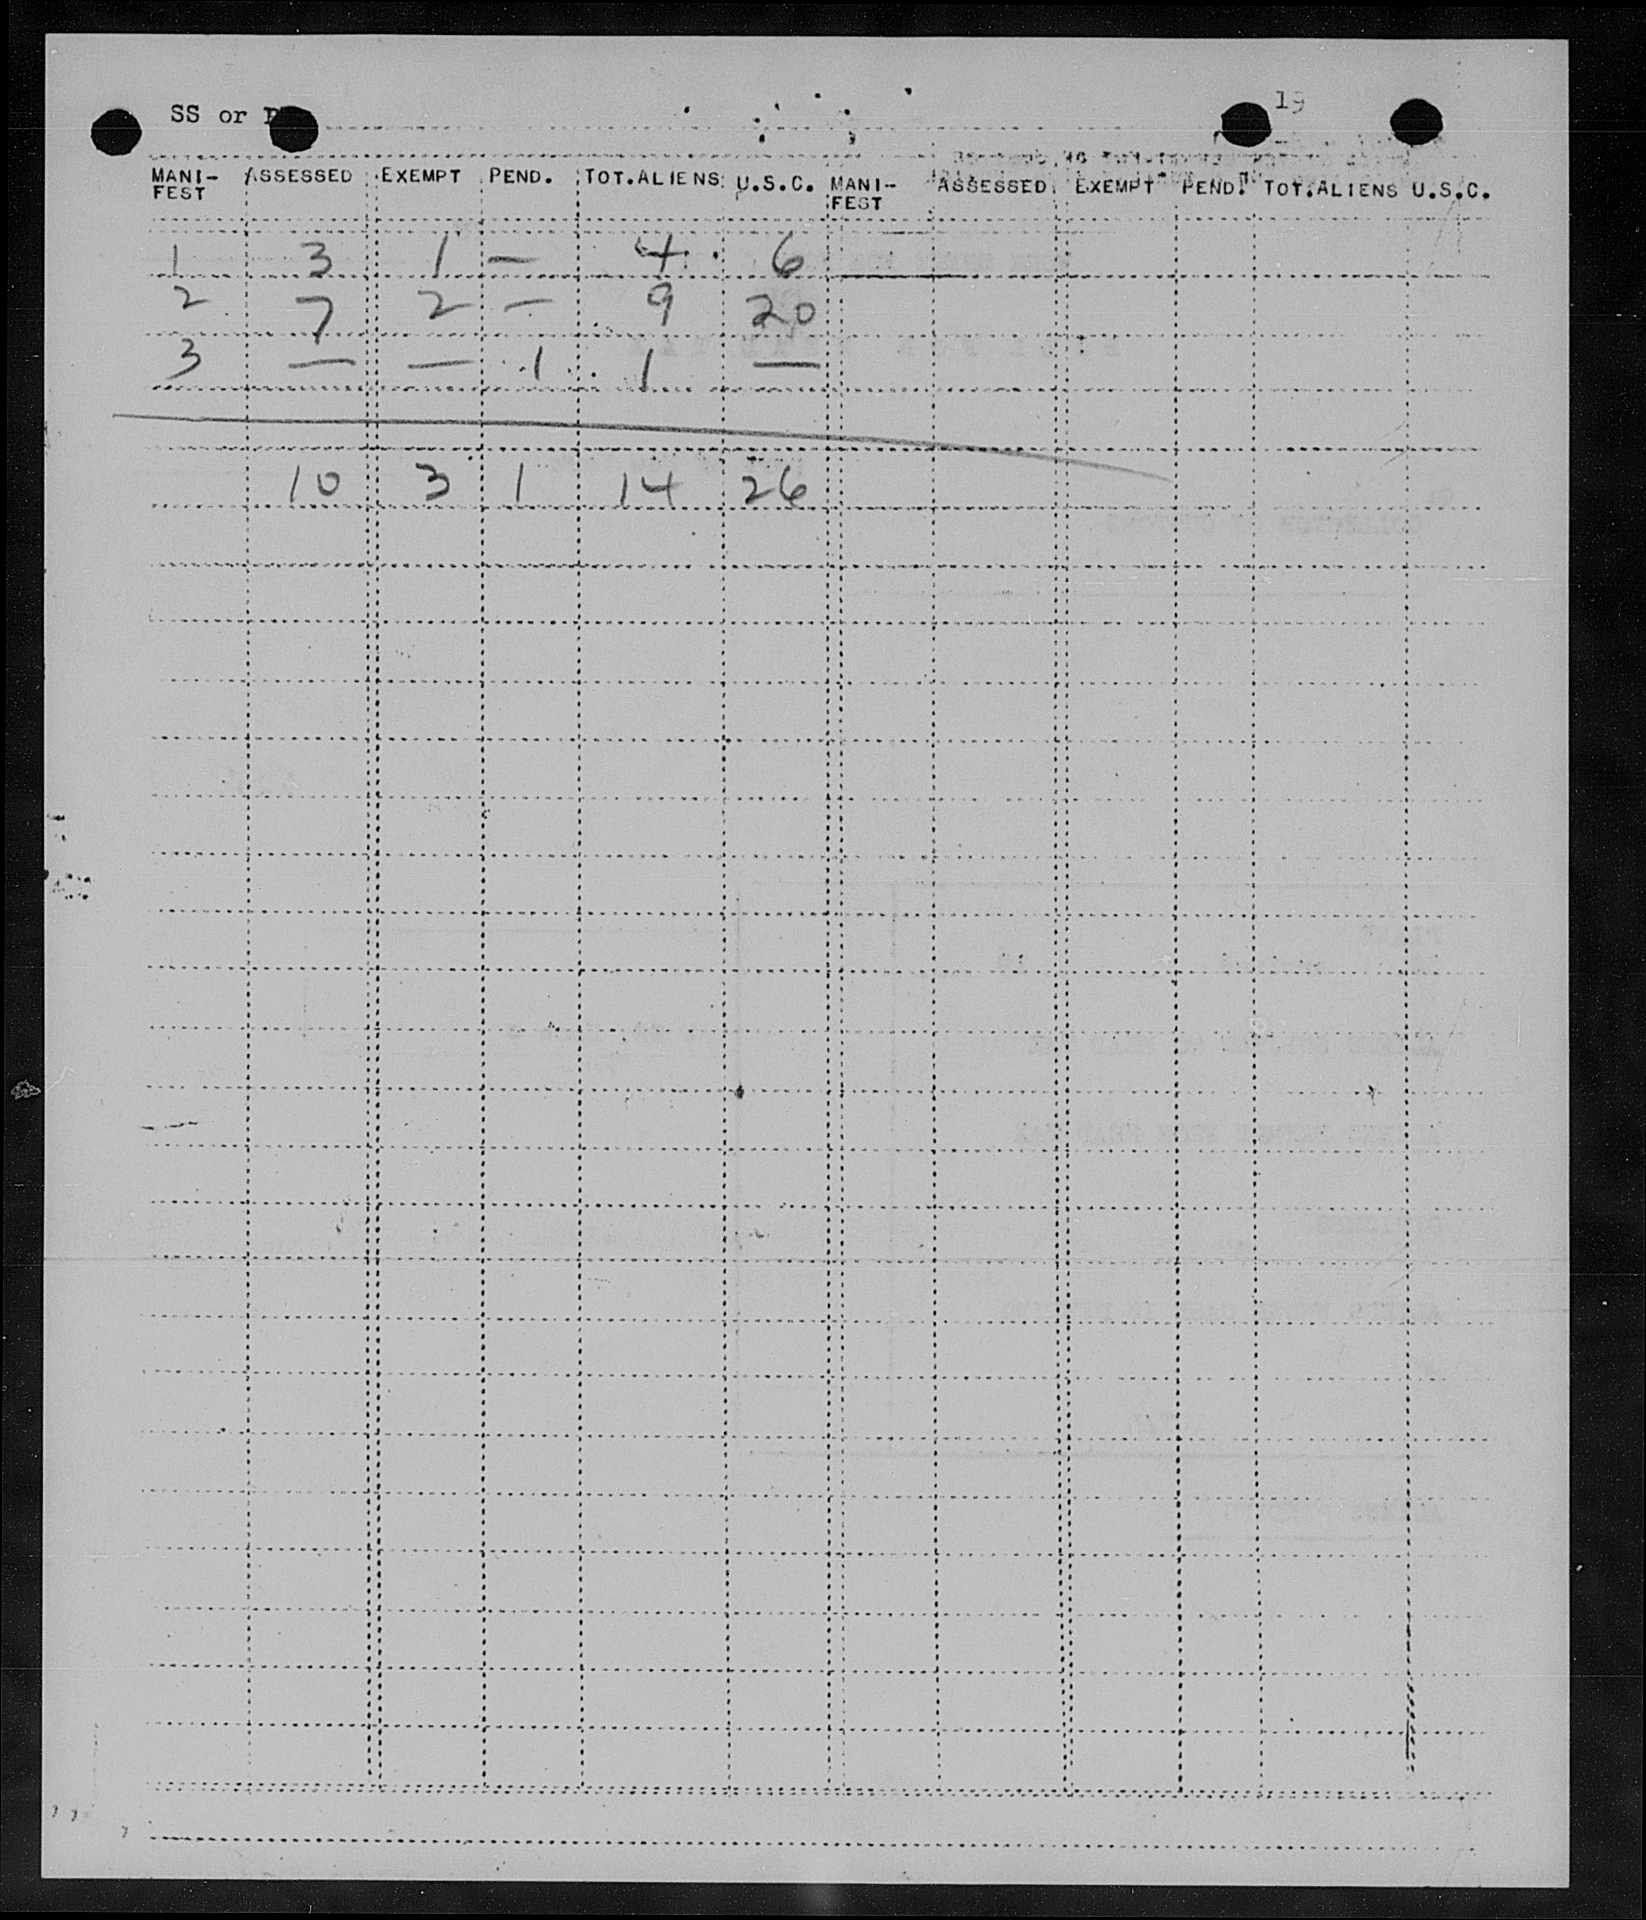 SS or
19
MANI-FEST ASSESSED EXEMPT PEND. TOT.ALIENS U.S.C. MANI-FEST ASSESSED EXEMPT PEND. TOT.ALIENS U.S.C.
1 3 1 — 4 6
2 7 2 — 9 20
3 — — 1 1 —
10 3 1 14 26